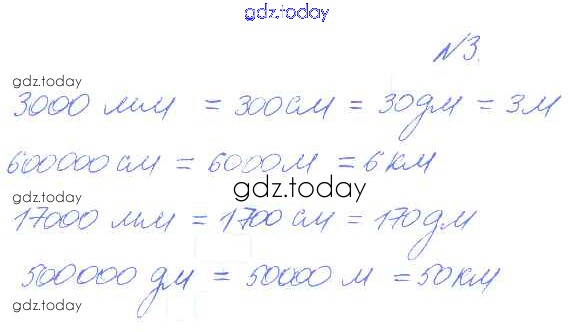 gdz.today
№3.
gdz.today
3000 мм = 300 см = 30 дм = 3 м
600000 см = 6000 м = 6 км
gdz.today
gdz.today
17000 мм = 1700 см = 170 дм
500000 дм = 50000 м = 50 км
gdz.today